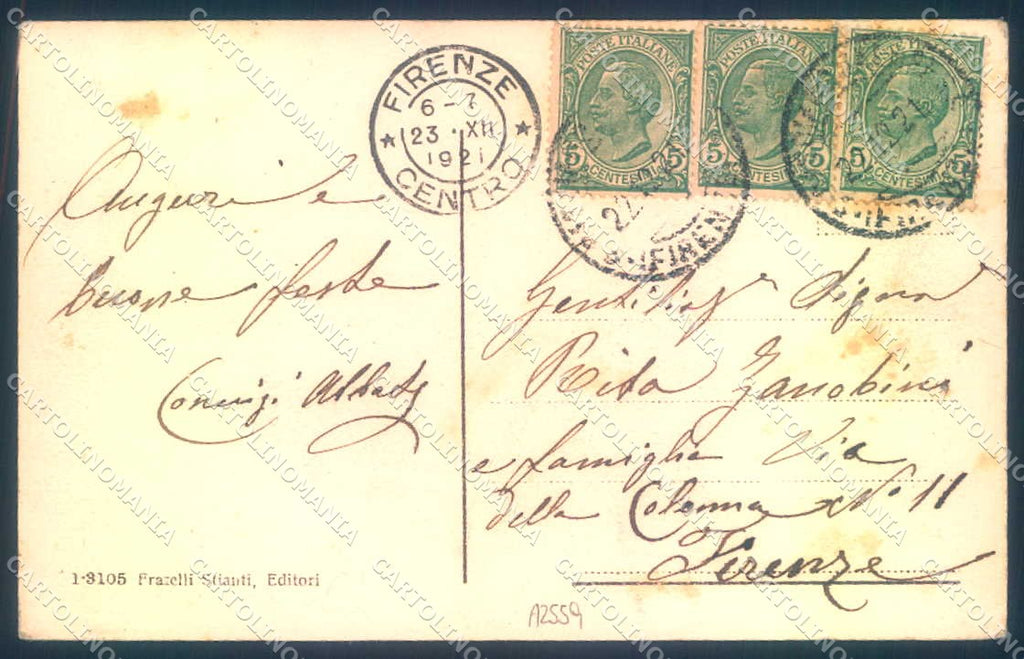 FIRENZE
6-7
23 · XII
1921
CENTRO
POSTE ITALIANE
5 CENTESIMI 5
POSTE ITALIANE
5 CENTESIMI 5
POSTE ITALIANE
5 CENTESIMI 5
22
(FIRENZE)
Auguri e
buone feste
Coniugi
Gentilis.ª Signora
Rita Zanobini
e famiglia Via
della Colonna N° 11
Firenze
1-3105 Fratelli Stianti, Editori
A2559
CARTOLINOMANIA